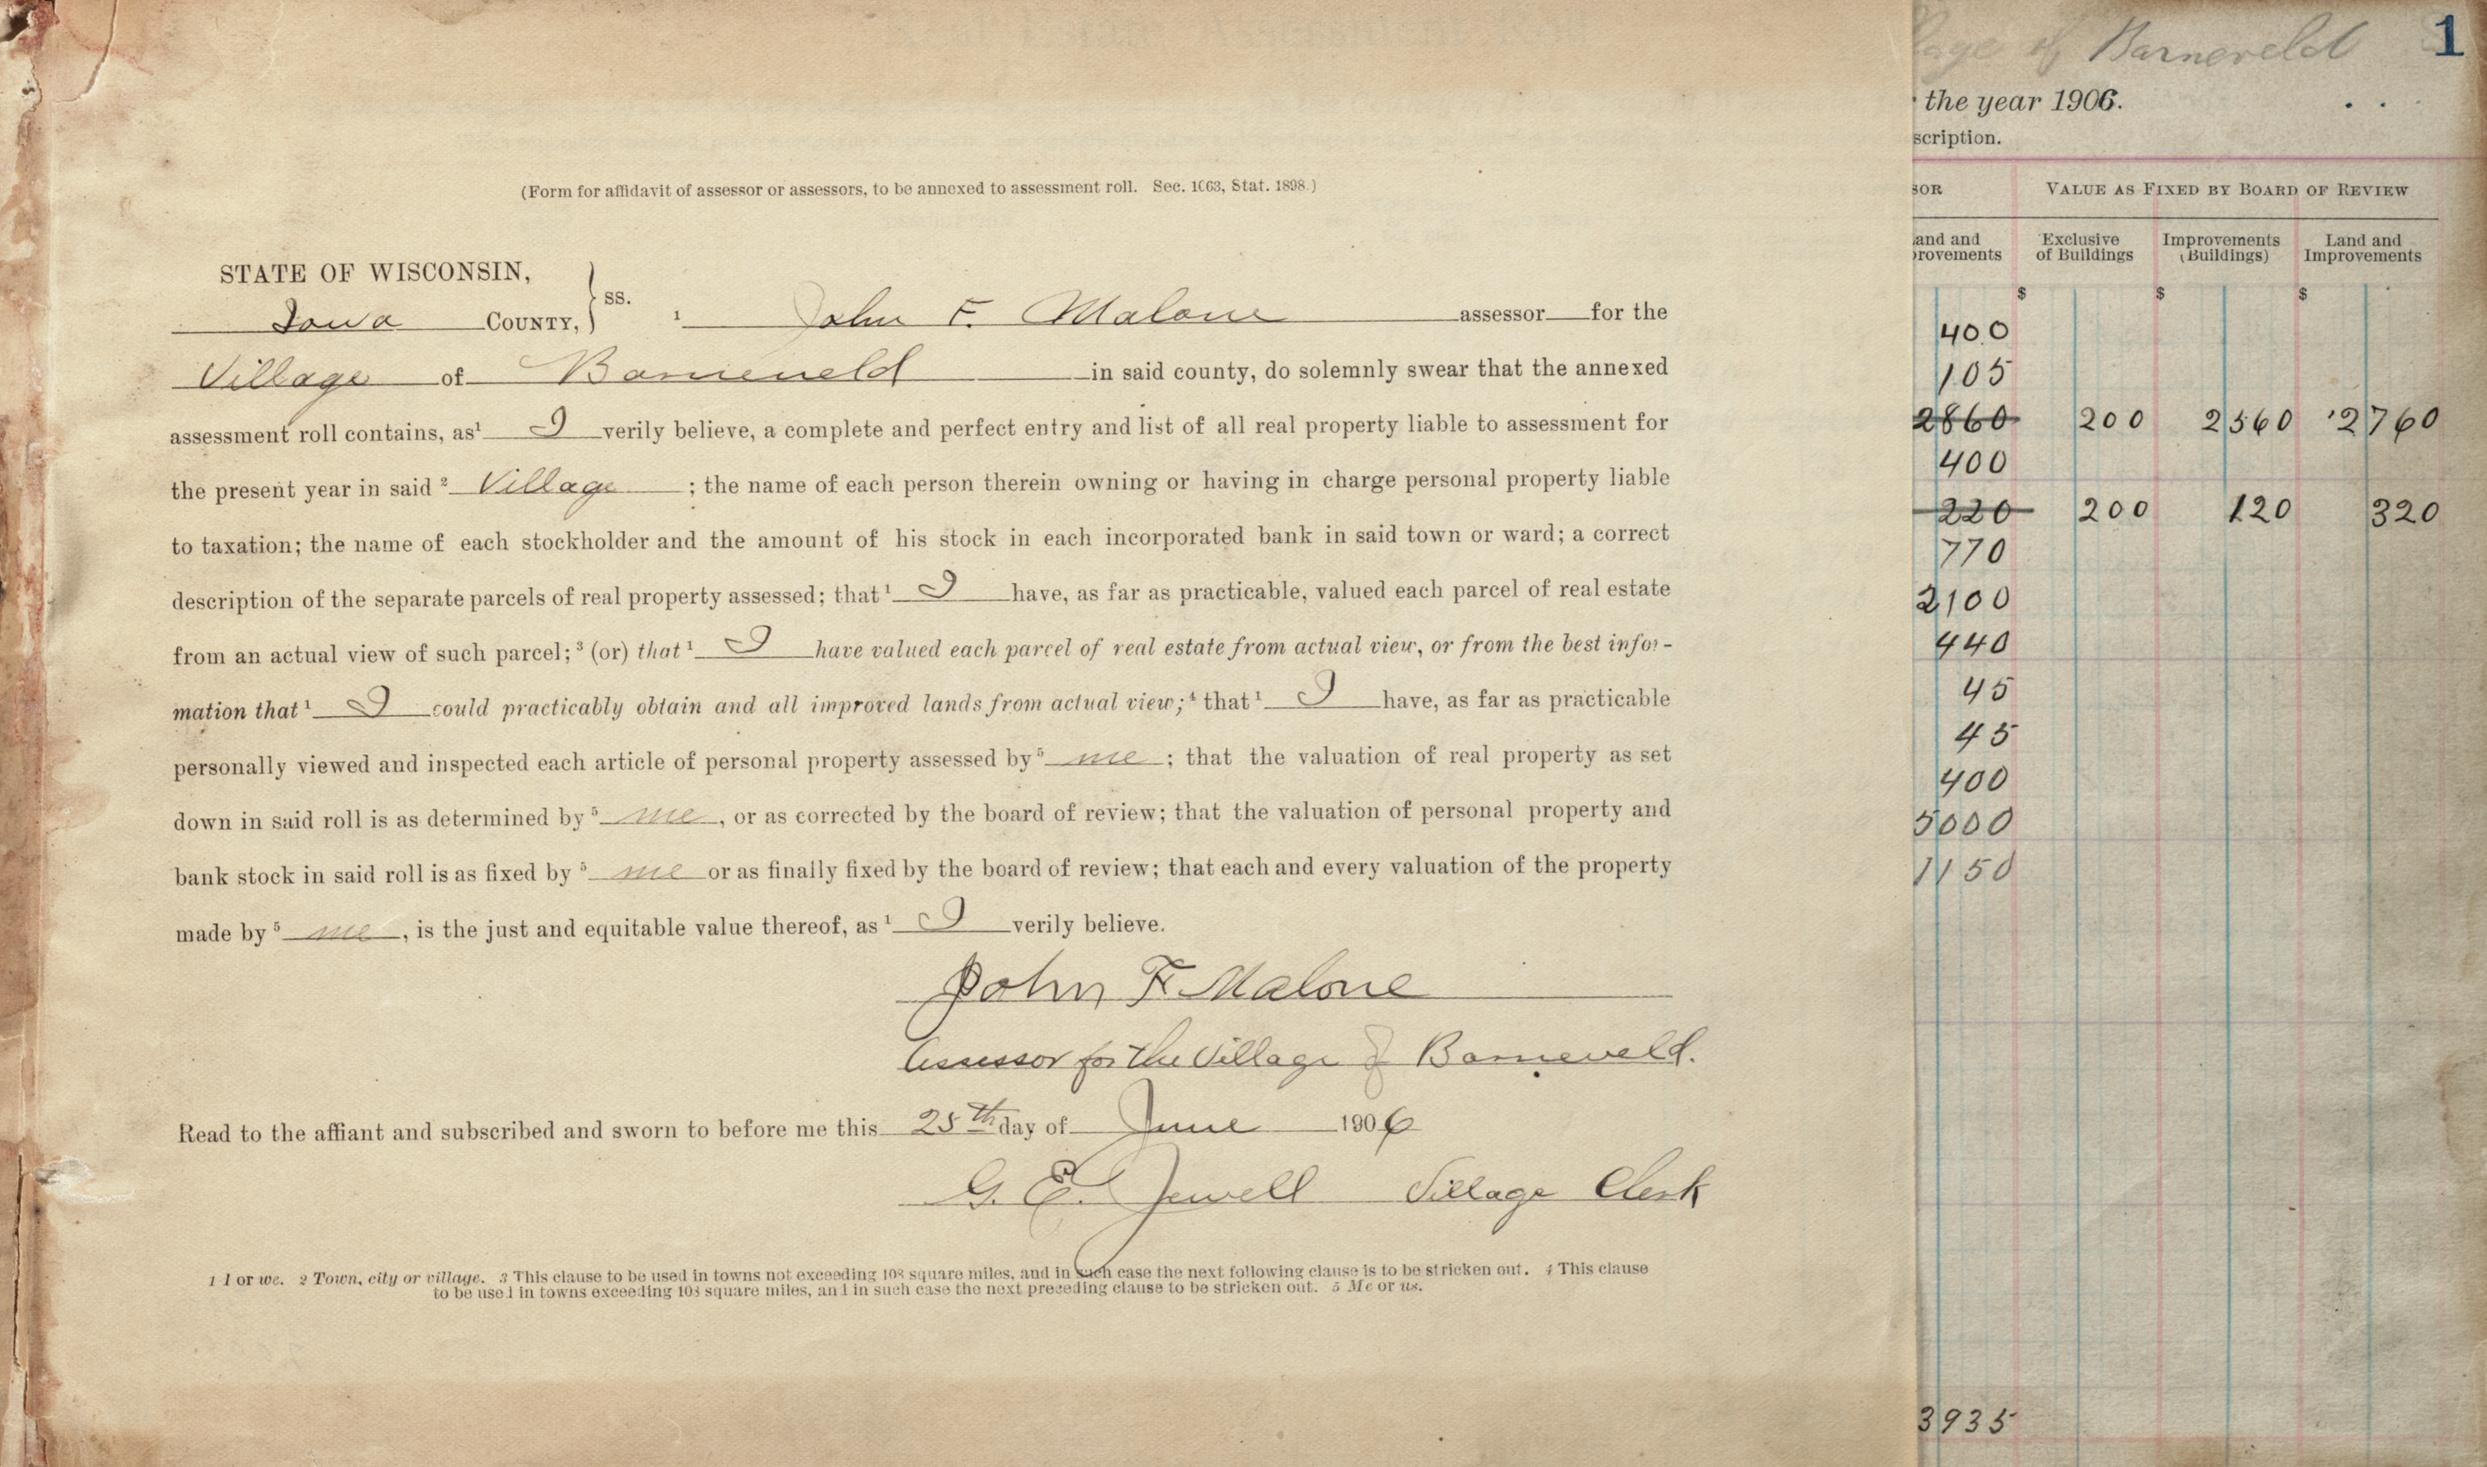 (Form for affidavit of assessor or assessors, to be annexed to assessment roll. Sec. 1063, Stat. 1898.)
STATE OF WISCONSIN,
Iowa COUNTY, } ss. ¹ John F. Malone assessor for the
Village of Barneveld in said county, do solemnly swear that the annexed
assessment roll contains, as¹ I verily believe, a complete and perfect entry and list of all real property liable to assessment for
the present year in said ² Village ; the name of each person therein owning or having in charge personal property liable
to taxation; the name of each stockholder and the amount of his stock in each incorporated bank in said town or ward; a correct
description of the separate parcels of real property assessed; that ¹ I have, as far as practicable, valued each parcel of real estate
from an actual view of such parcel; ³ (or) that ¹ I have valued each parcel of real estate from actual view, or from the best infor-
mation that ¹ I could practicably obtain and all improved lands from actual view; ⁴ that ¹ I have, as far as practicable
personally viewed and inspected each article of personal property assessed by ⁵ me ; that the valuation of real property as set
down in said roll is as determined by ⁵ me , or as corrected by the board of review; that the valuation of personal property and
bank stock in said roll is as fixed by ⁵ me or as finally fixed by the board of review; that each and every valuation of the property
made by ⁵ me , is the just and equitable value thereof, as ¹ I verily believe.
John F. Malone
Assessor for the Village of Barneveld.
Read to the affiant and subscribed and sworn to before me this 25th day of June 1906
G. E. Jewell Village Clerk
1 I or we. 2 Town, city or village. 3 This clause to be used in towns not exceeding 108 square miles, and in such case the next following clause is to be stricken out. 4 This clause
to be used in towns exceeding 108 square miles, and in such case the next preceding clause to be stricken out. 5 Me or us.
lage of Barneveld 1
the year 1906.
scription.
SOR VALUE AS FIXED BY BOARD OF REVIEW
and and Exclusive Improvements Land and
provements of Buildings (Buildings) Improvements
$ $ $
400
105
2860 200 2560 2760
400
220 200 120 320
770
2100
440
45
45
400
5000
1150
3935